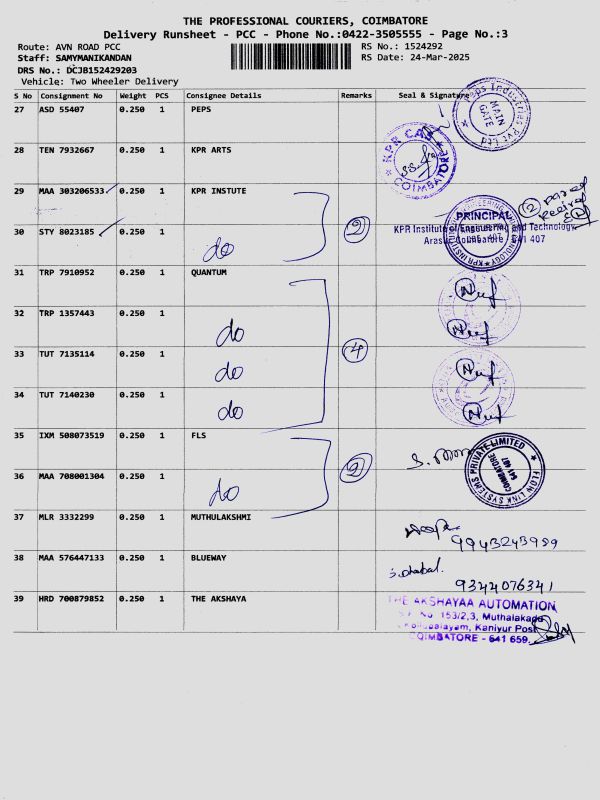 THE PROFESSIONAL COURIERS, COIMBATORE
Delivery Runsheet - PCC - Phone No.:0422-3505555 - Page No.:3
Route: AVN ROAD PCC
RS No.: 1524292
Staff: SAMYMANIKANDAN
RS Date: 24-Mar-2025
DRS No.: DCJB152429203
Vehicle: Two Wheeler Delivery
S No Consignment No Weight PCS Consignee Details Remarks Seal & Signature
27 ASD 55407 0.250 1 PEPS
Peps Industries Pvt Ltd MAIN GATE
28 TEN 7932667 0.250 1 KPR ARTS
KPR COIMBATORE
29 MAA 303206533 0.250 1 KPR INSTUTE
PRINCIPAL
KPR Institute of Engineering and Technology
Arasur, Coimbatore 641 407
30 STY 8023185 0.250 1 do 2
31 TRP 7910952 0.250 1 QUANTUM
32 TRP 1357443 0.250 1 do
33 TUT 7135114 0.250 1 do 4
34 TUT 7140230 0.250 1 do
35 IXM 508073519 0.250 1 FLS
FLOW LINK SYSTEMS PRIVATE LIMITED
COIMBATORE
641 407
36 MAA 708001304 0.250 1 do 2
37 MLR 3332299 0.250 1 MUTHULAKSHMI
9943243959
38 MAA 576447133 0.250 1 BLUEWAY
9344076341
39 HRD 700879852 0.250 1 THE AKSHAYA
THE AKSHAYAA AUTOMATION
S.F. No 153/2,3, Muthalakadu
Kaniyur Post
COIMBATORE - 641 659.